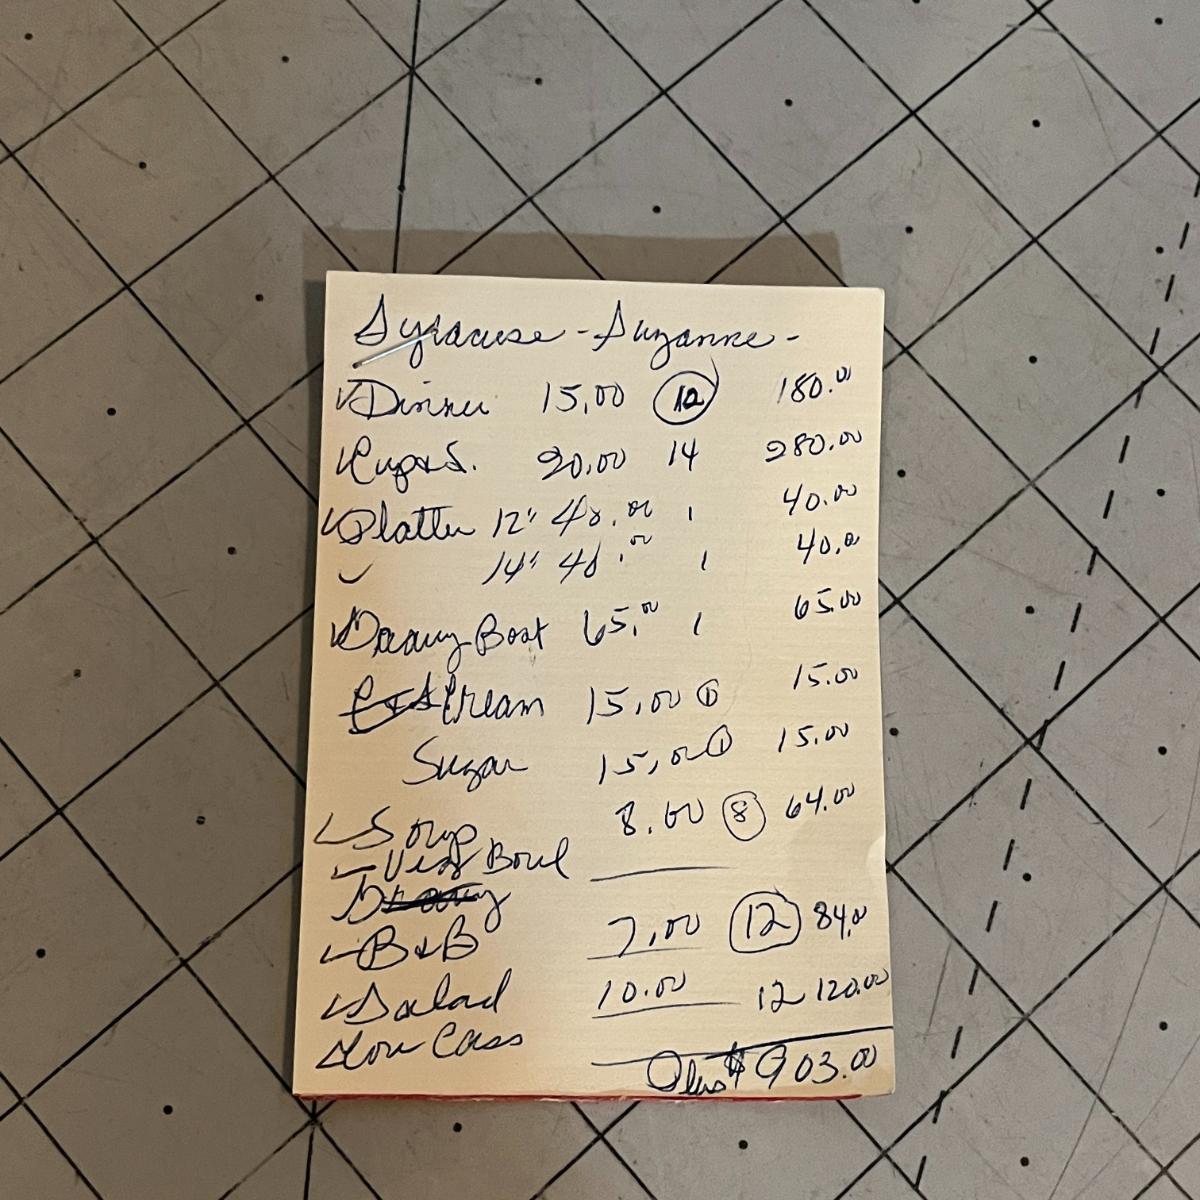 Syracuse - Suzanne -
✓Dinner 15.00 12 180.00
✓Cup&S. 20.00 14 280.00
✓Platter 12" 40.00 1 40.00
✓ 14" 40.00 1 40.0
✓Gravy Boat 65.00 1 65.00
Cream 15.00 1 15.00
Sugar 15.00 1 15.00
✓Soup 8.00 8 64.00
✓Veg Bowl
Gravy
✓B&B 7.00 12 84.00
✓Salad 10.00 12 120.00
✓Cov Cass
Plus $903.00